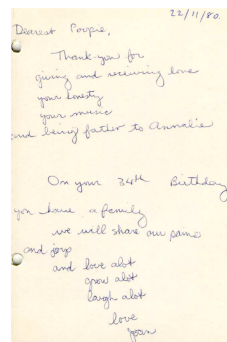 22/11/80.
Dearest Poopie,
Thank-you for
giving and receiving love
your honesty
your music
and being father to Annalie
On your 34th Birthday
you have a family
we will share our pains
and joys
and love alot
grow alot
laugh alot
love